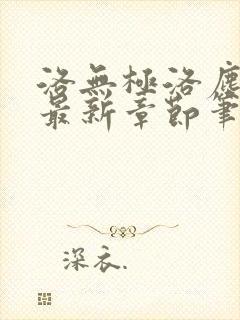 洛無極洛塵
最新章節筆
深衣.